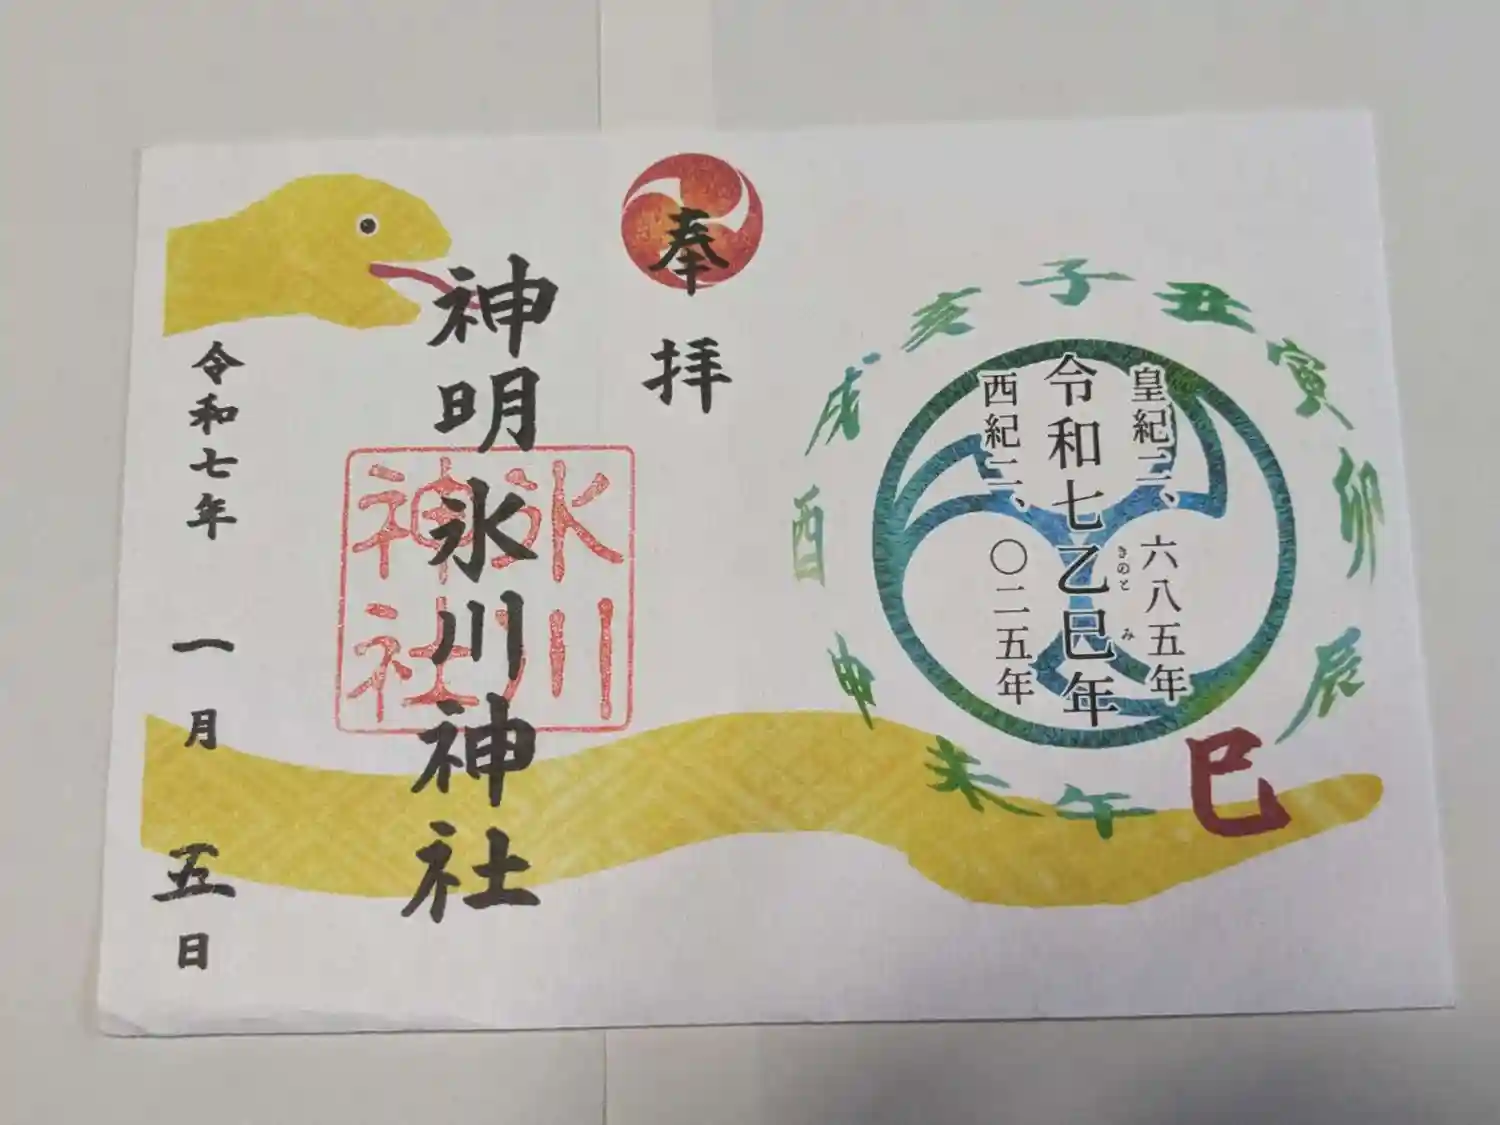 子
丑
寅
卯
辰
巳
午
未
申
酉
戌
亥
皇紀二、六八五年
令和七乙巳年
きのと み
西紀二、〇二五年
奉拝
神明氷川神社
氷川
神社
令和七年 一月 五日